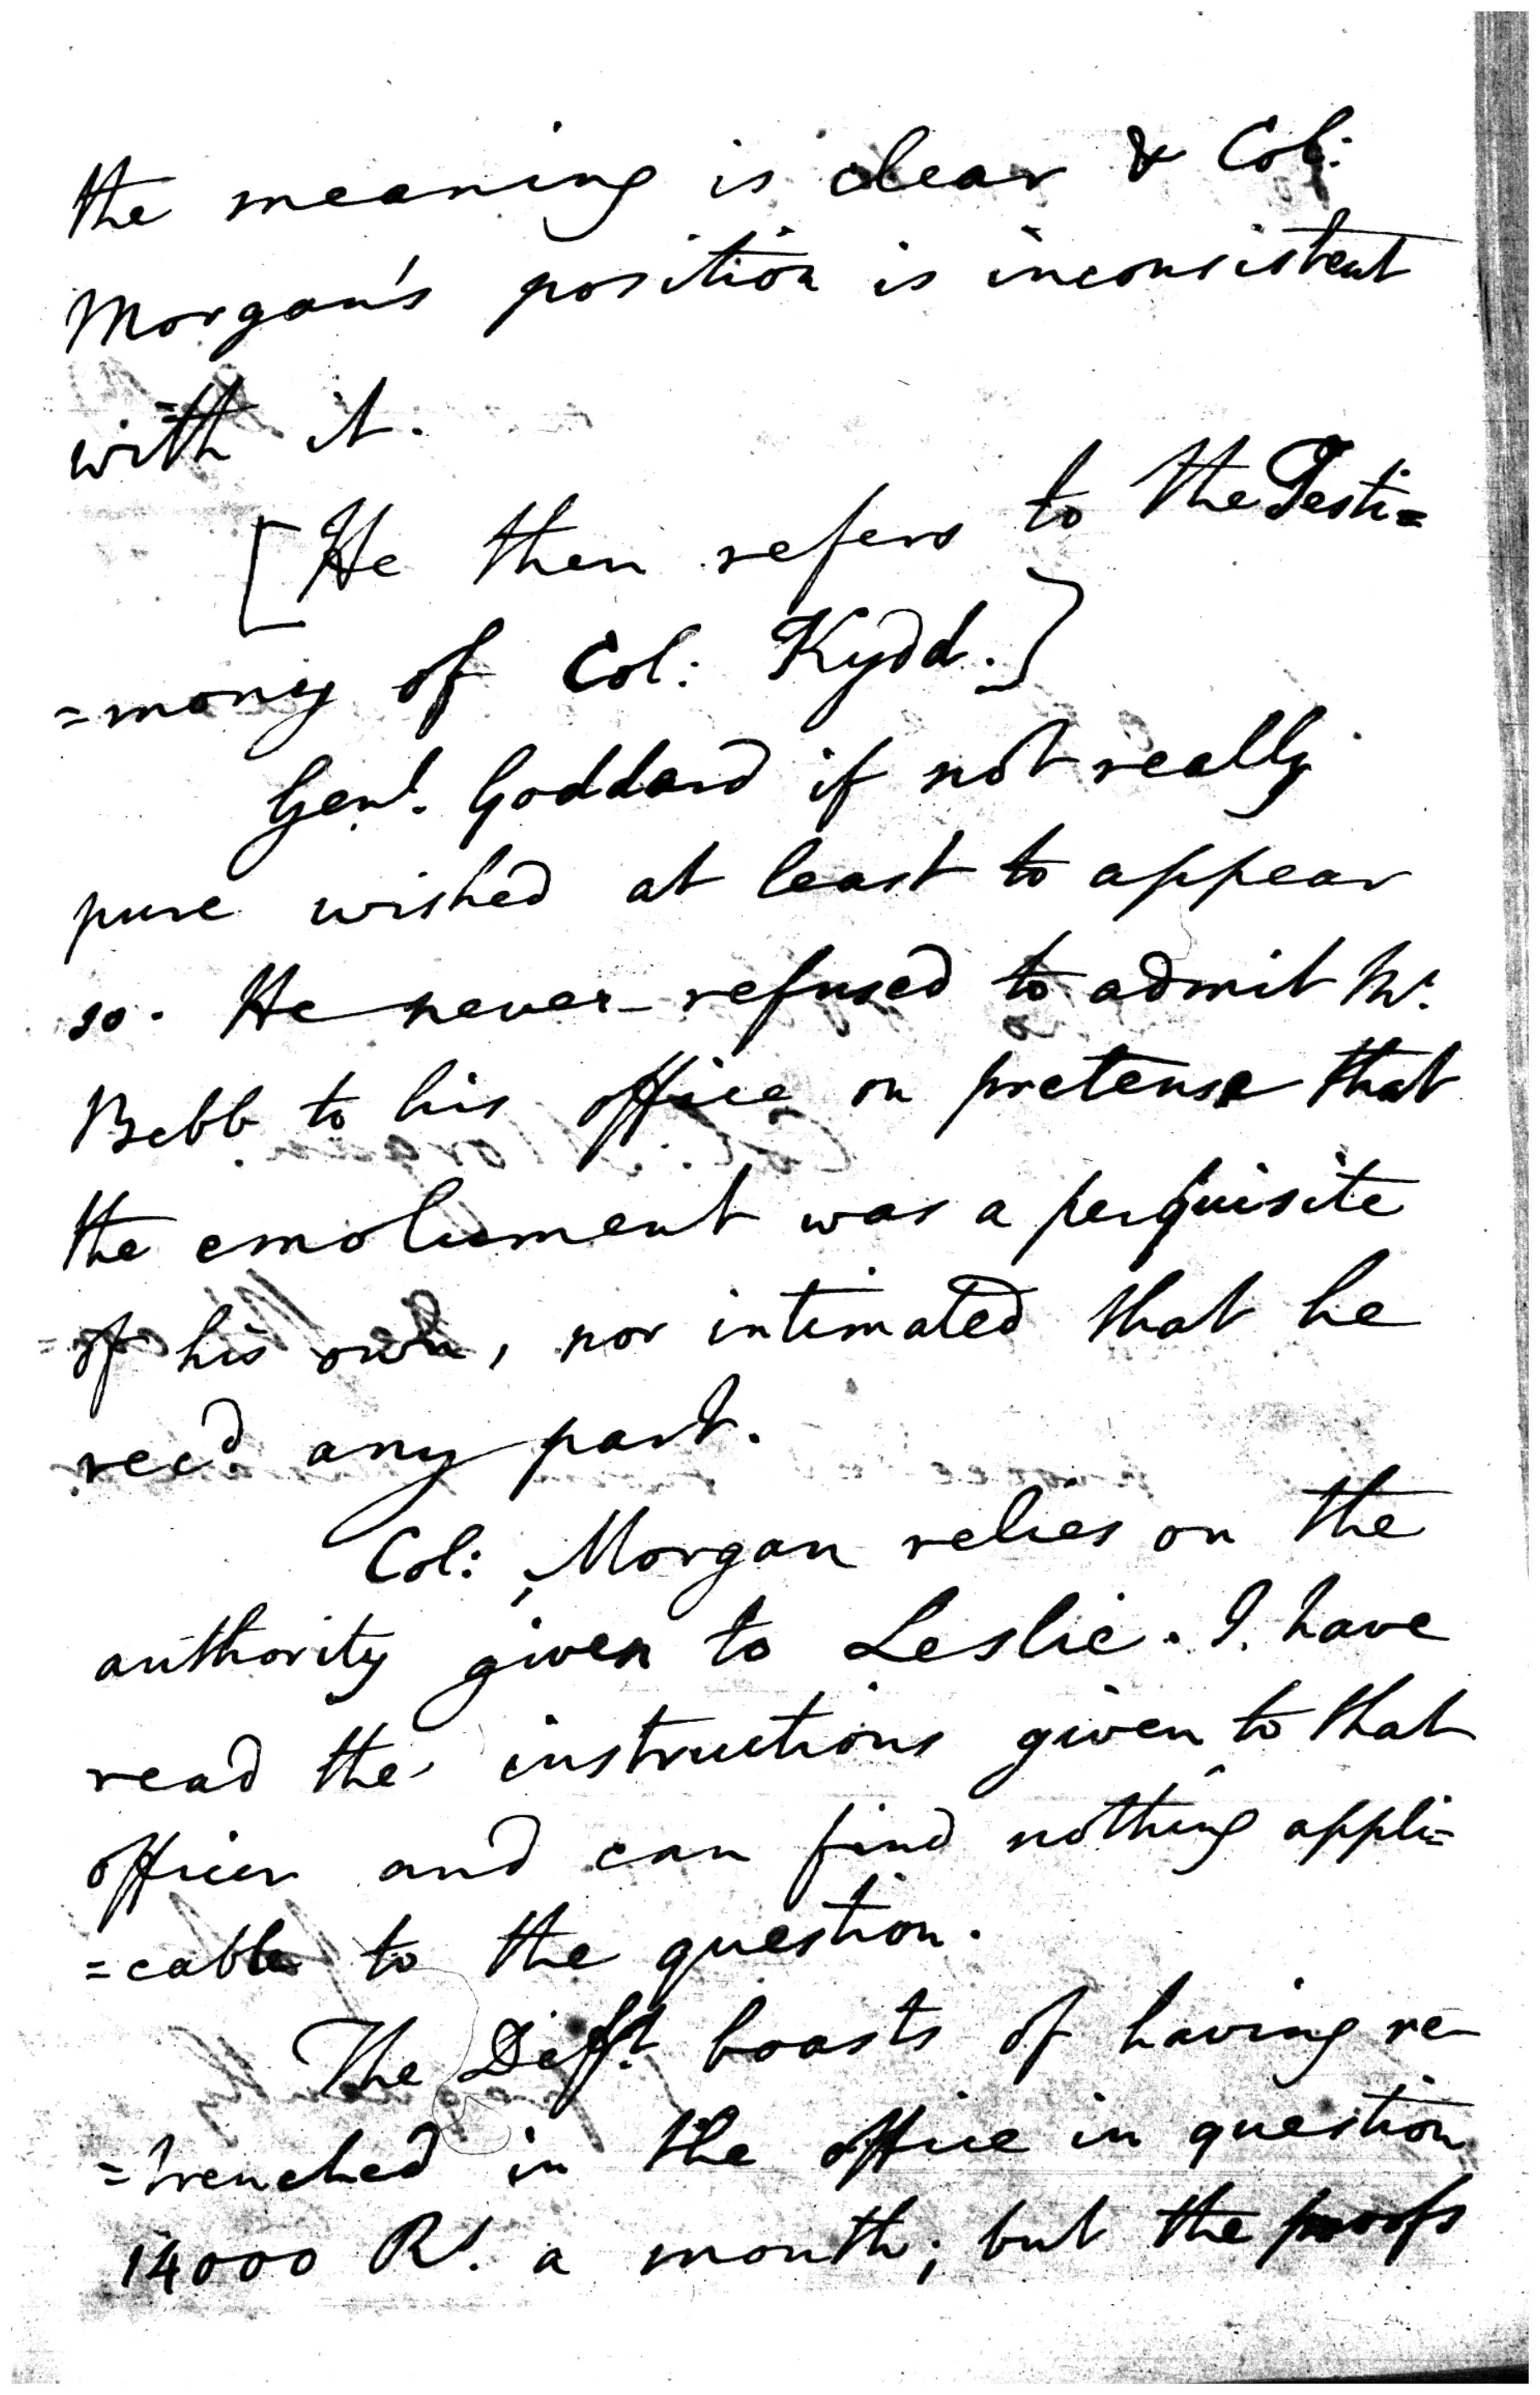 the meaning is clear & Col:
Morgan's position is inconsistent
with it.
[He then refers to the Testi=
=mony of Col: Kydd.]
Genl. Goddard if not really
pure wished at least to appear
so. He never refused to admit Mr.
Bebb to his office on pretense that
the emolument was a perquisite
of his own, nor intimated that he
recd. any part.
Col: Morgan relies on the
authority given to Leslie. I have
read the instructions given to that
officer and can find nothing appli=
=cable to the question.
The Deft. boasts of having re-
=trenched in the office in question
14000 Rs. a month; but the proofs